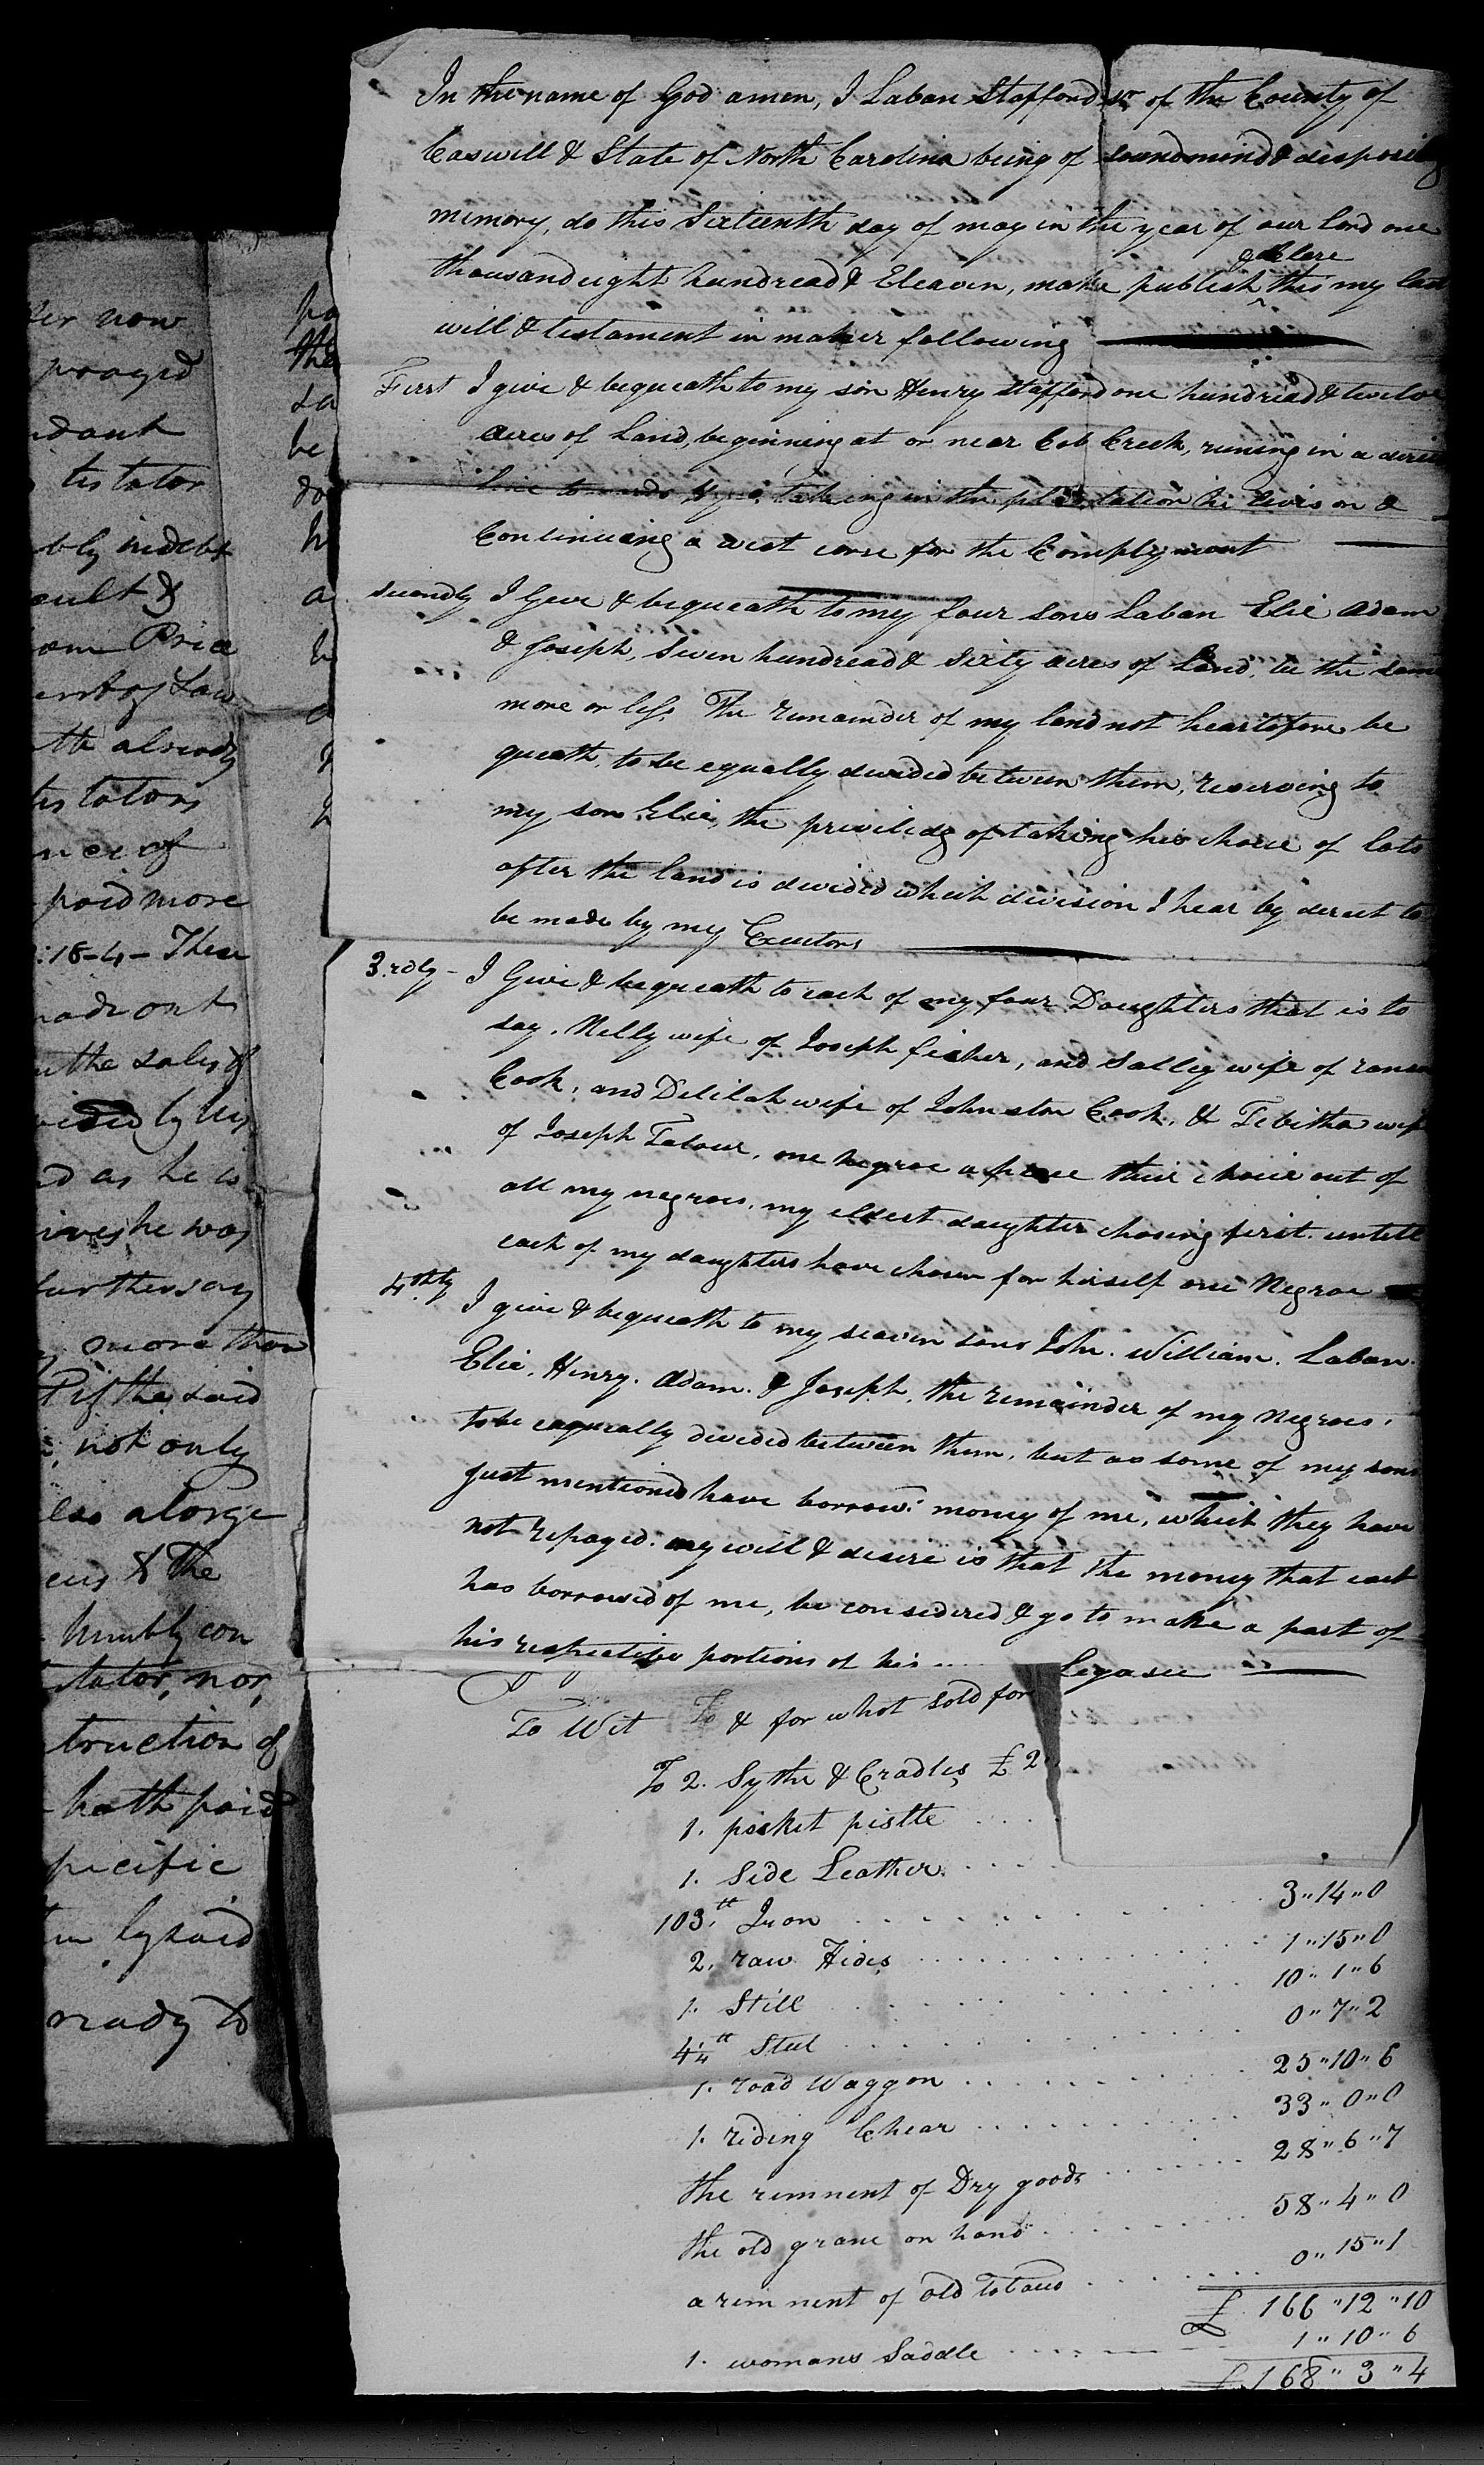 ler now
prayed
ndant
testator
bly indebt
cult &
om Price
ent of Law
ath already
testators
nce of
paid more
:18-4- These
made out
the sales of
by his
d as he is
ives he was
further say
more than
if the said
not only
also a large
cus & the
humbly con
tator, nor,
truction of
hath paid
pecific
ly said
ready to
pa
the
sa
be
do
h
a
h
In the name of God amen, I Laban Stafford Sr of the County of
Caswell & State of North Carolina being of sound mind & disposing
memory, do this Sixteenth day of may in the year of our lord one
thousand eight hundread & Eleaven, make publish & declare this my last
will & testament in maner following
First I give & bequeath to my son Henry Stafford one hundread & twelve
acres of Land, beginning at or near Cob Creek, runing in a direct
line towards taking in the plantation he livis on &
Continuing a west corse for the Complyment
secondly I Geve & bequeath to my four sons Laban Elie Adam
& Joseph, Seven hundread & Sixty acres of Land, be the same
more or less, The remainder of my land not heartofore be
queath, to be equally devided between them, reserving to
my son Elie, the priviledg of taking his choice of lots
after the land is devided which division I hear by derect to
be made by my Executors
3.rdly - I Give & bequeath to each of my four Daughters that is to
say. Nelly wife of Joseph ficher, and Salley wife of
Cook, and Delilah wife of Johnston Cook, & Tebitha wife
of Joseph Tatour, one negroe a piece their choice out of
all my negroes, my eldest daughter chosing first. untill
each of my daughters have chosen for hirself one Negroe
4.thly I give & bequeath to my seaven sons John. William. Laban.
Elie. Henry. Adam. & Joseph, the remainder of my Negroes,
to be eaqueally devided between them, but as some of my sons
just mentioned have borrowd money of me, which they have
not repayed: my will & desire is that the money that each
has borrowed of me, be considered & go to make a part of
his respective portions of his Legasie
To Wit To & for what sold for
To 2. Sythe & Cradles £2
1. pocket pistle
1. Side Leather
103.tt Iron 3"14"0
2. raw Hides 1"15"0
1. Still 10"1"6
4 1/4tt Steel 0"7"2
1. road Waggon 25"10"6
1. riding Chear 33"0"0
the remnent of Dry goods 28"6"7
the old grane on hand 58"4"0
a remnent of old Tobaco 0"15"1
£ 166"12"10
1. womans Saddle 1"10"6
£168"3"4